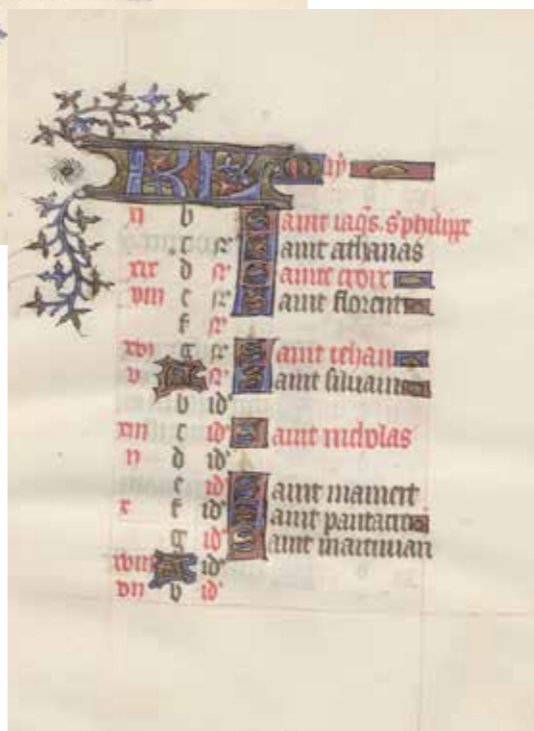 KL May
xi b Saint iaqs. s. philippe
c n' Saint athanas
xix d n' Sainte croix
viii e n' Saint florent
f n'
xvi g n' Saint iehan
v A n' Saint siluain
b id'
xiii c id' Saint nicholas
ii d id'
e id' Saint mamert
x f id' Saint
g id' Saint
xviii A id'
vii b id'